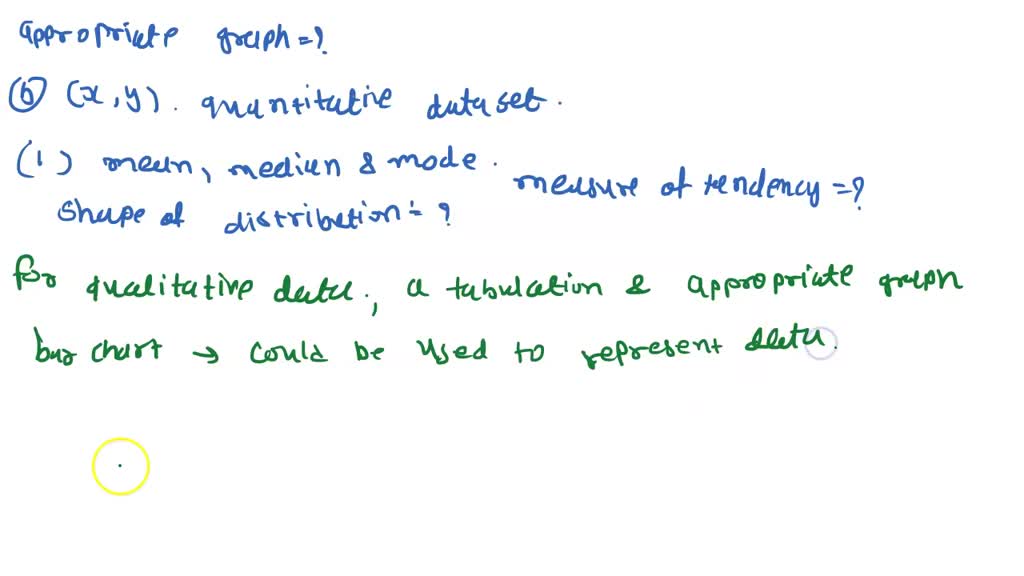 appropriate graph=?
(b) (x,y). quantitative dataset.
(1) mean, median & mode. measure of tendency=?
Shape of distribution=?
for qualitative data, a tabulation & appropriate graph
bar chart → could be used to represent data.